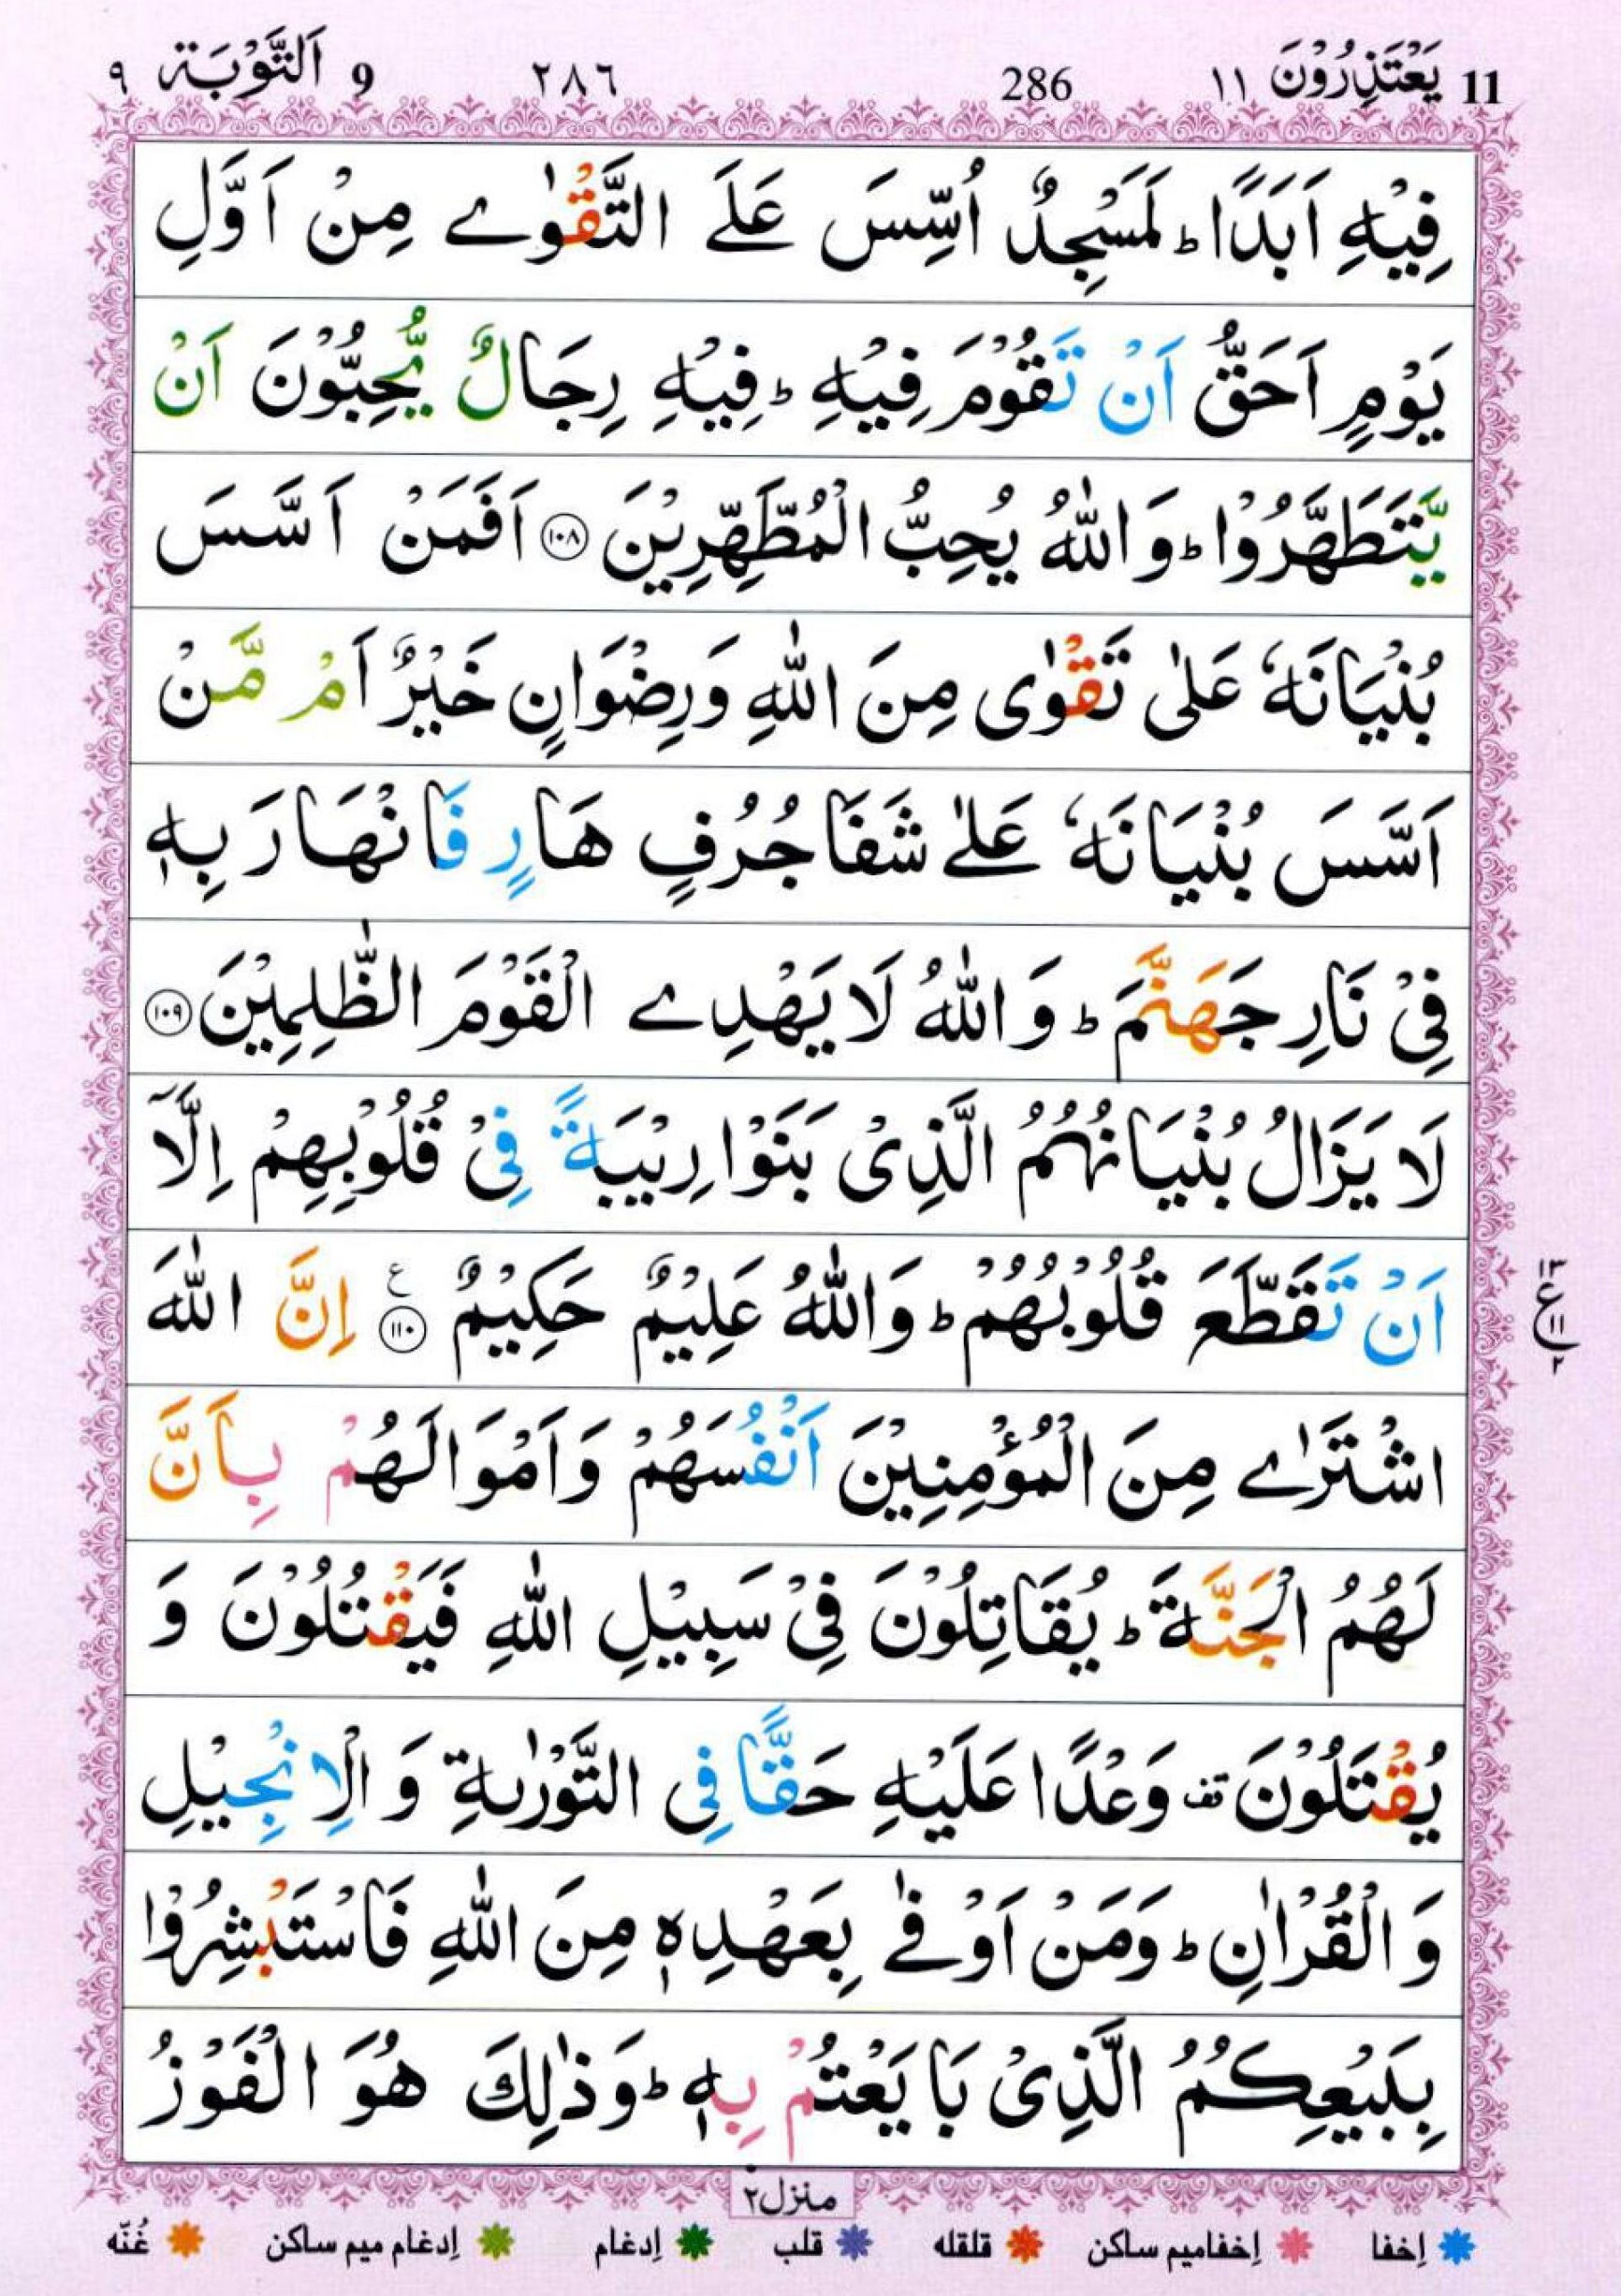 11 يَعْتَذِرُوْنَ ١١ 286 ٢٨٦ 9 اَلتَّوْبَة ٩
فِيْهِ اَبَدًا ؕ لَمَسْجِدٌ اُسِّسَ عَلَے التَّقْوٰے مِنْ اَوَّلِ
يَوْمٍ اَحَقُّ اَنْ تَقُوْمَ فِيْهِ ؕ فِيْهِ رِجَالٌ يُّحِبُّوْنَ اَنْ
يَّتَطَهَّرُوْا ؕ وَاللّٰهُ يُحِبُّ الْمُطَّهِّرِيْنَ ۝١٠٨ اَفَمَنْ اَسَّسَ
بُنْيَانَهٗ عَلٰى تَقْوٰى مِنَ اللّٰهِ وَرِضْوَانٍ خَيْرٌ اَمْ مَّنْ
اَسَّسَ بُنْيَانَهٗ عَلٰے شَفَا جُرُفٍ هَارٍ فَانْهَارَ بِهٖ
فِيْ نَارِ جَهَنَّمَ ؕ وَاللّٰهُ لَا يَهْدِے الْقَوْمَ الظّٰلِمِيْنَ ۝١٠٩
لَا يَزَالُ بُنْيَانُهُمُ الَّذِيْ بَنَوْا رِيْبَةً فِيْ قُلُوْبِهِمْ اِلَّاۤ
اَنْ تَقَطَّعَ قُلُوْبُهُمْ ؕ وَاللّٰهُ عَلِيْمٌ حَكِيْمٌ ۝١١٠ ع اِنَّ اللّٰهَ
١٣ ع ١١ ٢
اشْتَرٰے مِنَ الْمُؤْمِنِيْنَ اَنْفُسَهُمْ وَاَمْوَالَهُمْ بِاَنَّ
لَهُمُ الْجَنَّةَ ؕ يُقَاتِلُوْنَ فِيْ سَبِيْلِ اللّٰهِ فَيَقْتُلُوْنَ وَ
يُقْتَلُوْنَ قف وَعْدًا عَلَيْهِ حَقًّا فِي التَّوْرٰىةِ وَ الْاِنْجِيْلِ
وَ الْقُرْاٰنِ ؕ وَمَنْ اَوْفٰے بِعَهْدِهٖ مِنَ اللّٰهِ فَاسْتَبْشِرُوْا
بِبَيْعِكُمُ الَّذِيْ بَايَعْتُمْ بِهٖ ؕ وَذٰلِكَ هُوَ الْفَوْزُ
منزل٢
إخفا إخفاميم ساكن قلقله قلب إدغام إدغام ميم ساكن غُنّه